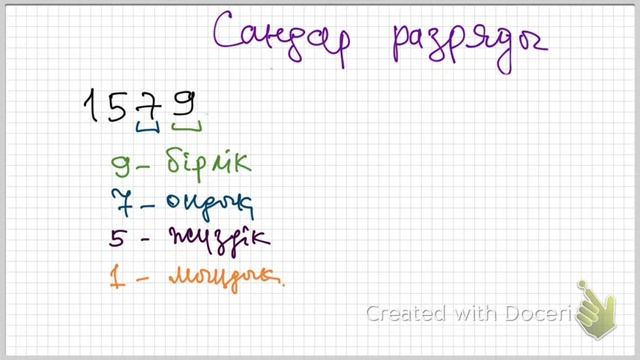 Сандар разряды
1579
9 – бірлік
7 – ондық
5 – жүздік
1 – мыңдық.
Created with Doceri